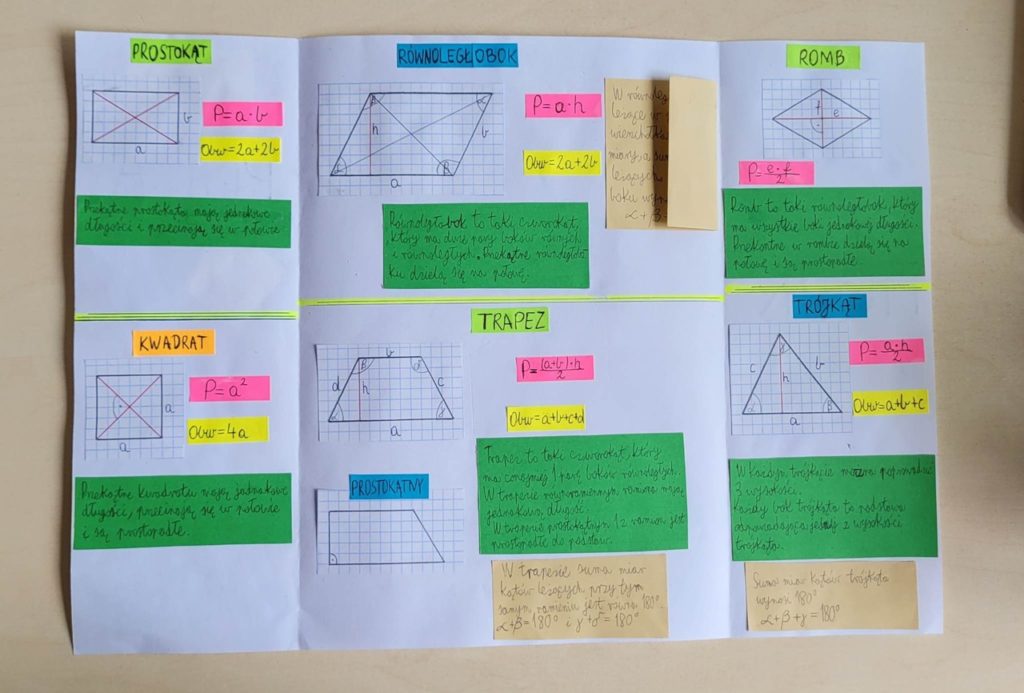 PROSTOKĄT
b
a
P=a·b
Obw=2a+2b
Przekątne prostokąta mają jednakowe
długości i przecinają się w połowie.
KWADRAT
a
a
P=a²
Obw=4a
Przekątne kwadratu mają jednakowe
długości, przecinają się w połowie
i są prostopadłe.
RÓWNOLEGŁOBOK
h
b
a
P=a·h
Obw=2a+2b
Równoległobok to taki czworokąt,
który ma dwie pary boków równych
i równoległych. Przekątne równoległobo
ku dzielą się na połowę.
W równoleg
leżące w
wierzchołka
miary, a sum
leżących
boku wyn
α+β
TRAPEZ
b
d
h
c
a
P=(a+b)·h/2
Obw=a+b+c+d
Trapez to taki czworokąt, który
ma conajmniej 1 parę boków równoległych.
W trapezie równoramiennym ramiona mają
jednakową długość.
W trapezie prostokątnym 1 z ramion jest
prostopadłe do podstaw.
PROSTOKĄTNY
W trapezie suma miar
kątów leżących przy tym
samym ramieniu jest równa 180°.
α+β=180° i γ+δ=180°
ROMB
f
e
P=e·f/2
Romb to taki równoległobok, który
ma wszystkie boki jednakowej długości.
Przekontne w rombie dzielą się na
połowę i są prostopadłe.
TRÓJKĄT
c
h
b
α
β
a
P=a·h/2
Obw=a+b+c
W każdym trójkącie można poprowadzić
3 wysokości.
Każdy bok trójkąta to podstawa
jednej z wysokości
trójkąta.
Suma miar kątów trójkąta
wynosi 180°
α+β+γ=180°